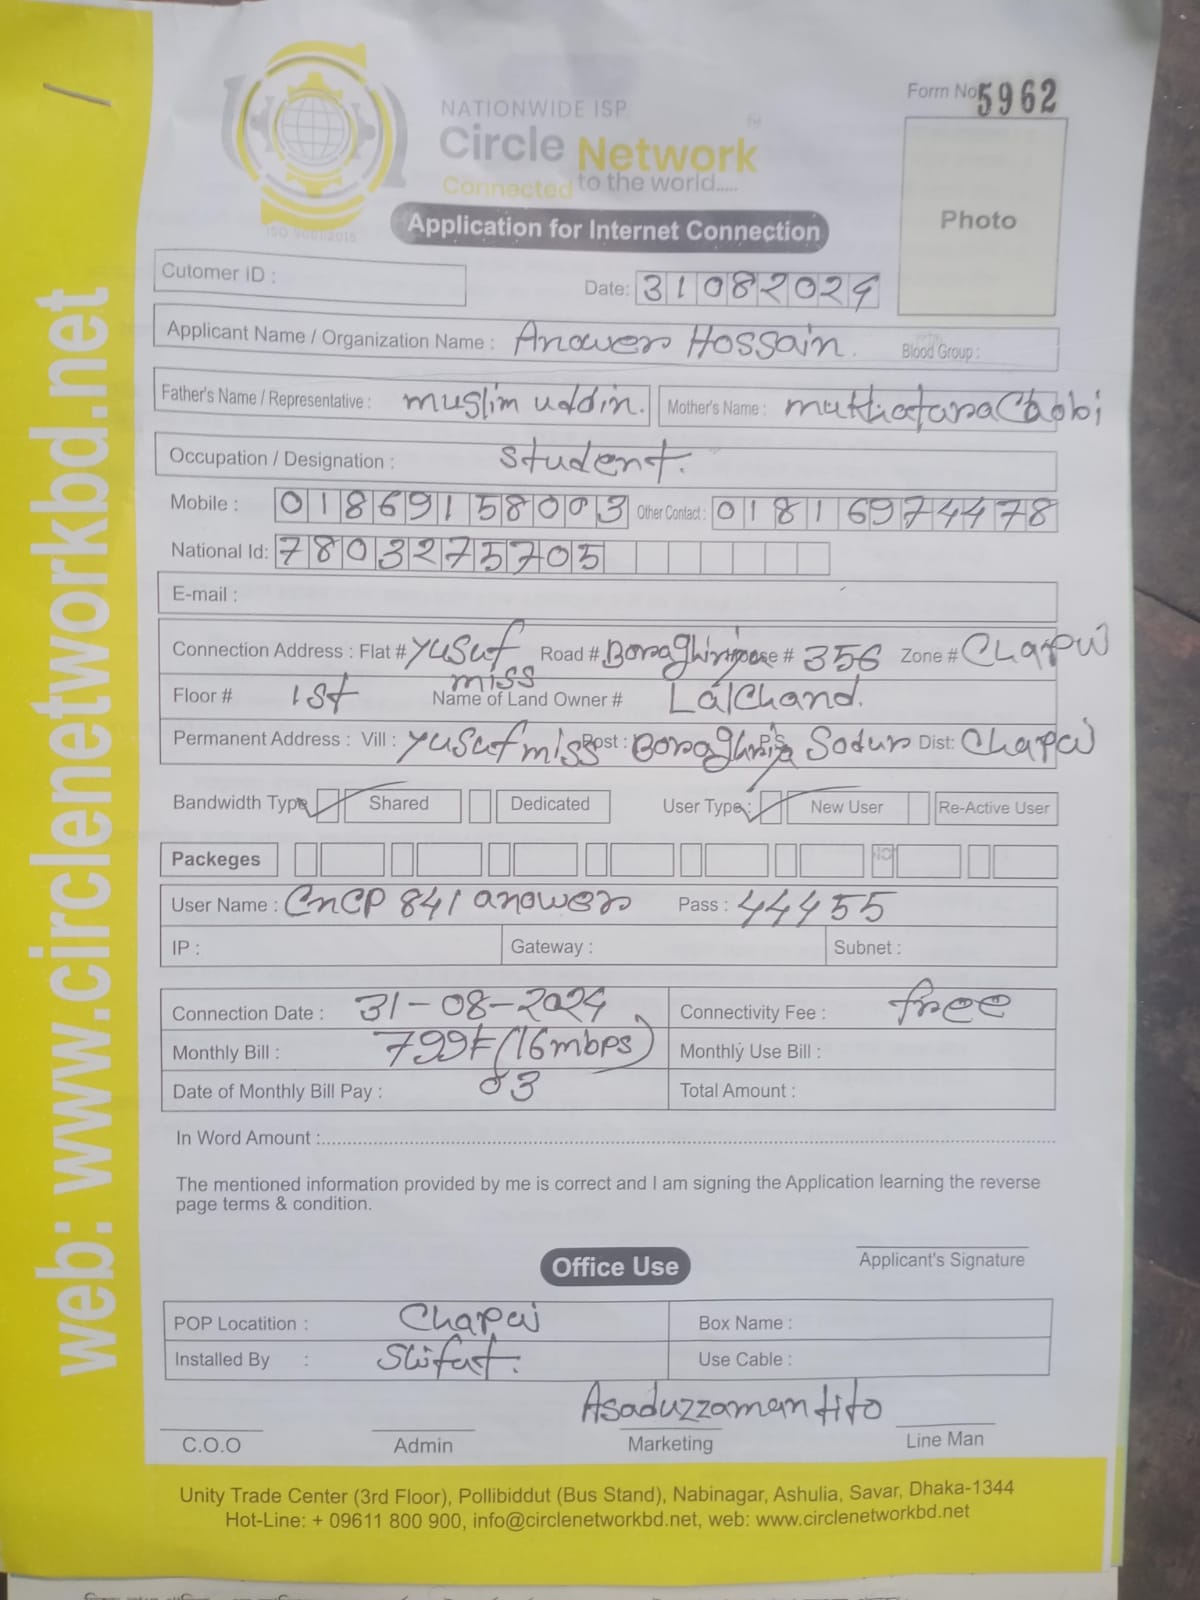 Form No 5962
NATIONWIDE ISP
Circle Network
Connected to the world.....
ISO 9001:2015
Photo
Application for Internet Connection
Cutomer ID :
Date: 31082024
Applicant Name / Organization Name : Anower Hossain. Blood Group :
Father's Name / Representative : muslim uddin. Mother's Name :
Occupation / Designation : student.
Mobile : 01869158003 Other Contact : 01816974478
National Id: 7803275705
E-mail :
Connection Address : Flat # yusuf miss Road # House # 356 Zone # Chapai
Floor # 1st Name of Land Owner # LalChand.
Permanent Address : Vill : yusuf miss Post : P.S Sodur Dist: Chapai
Bandwidth Type : Shared Dedicated User Type : New User Re-Active User
Packeges
User Name : CnCP 841 anower Pass : 44455
IP : Gateway : Subnet :
Connection Date : 31-08-2024 Connectivity Fee : free
Monthly Bill : 799 (16mbps) Monthly Use Bill :
Date of Monthly Bill Pay : 03 Total Amount :
In Word Amount :
The mentioned information provided by me is correct and I am signing the Application learning the reverse
page terms & condition.
Applicant's Signature
Office Use
POP Locatition : Chapai Box Name :
Installed By : Use Cable :
Asaduzzaman tito
C.O.O Admin Marketing Line Man
Unity Trade Center (3rd Floor), Pollibiddut (Bus Stand), Nabinagar, Ashulia, Savar, Dhaka-1344
Hot-Line: + 09611 800 900, info@circlenetworkbd.net, web: www.circlenetworkbd.net
web: www.circlenetworkbd.net